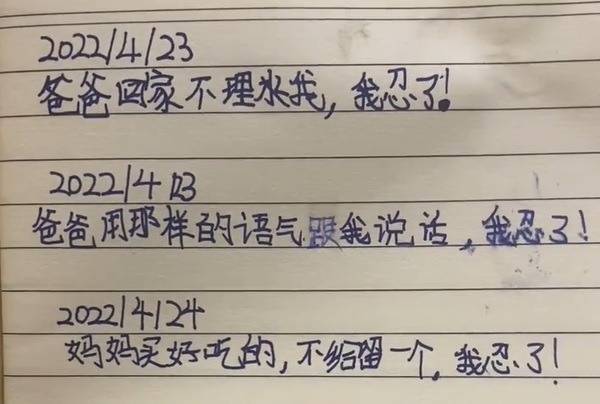 2022/4/23
爸爸回家不理水我，我忍了！
2022/4/23
爸爸用那样的语气跟我说话，我忍了！
2022/4/24
妈妈买好吃的，不给留一个，我忍了！